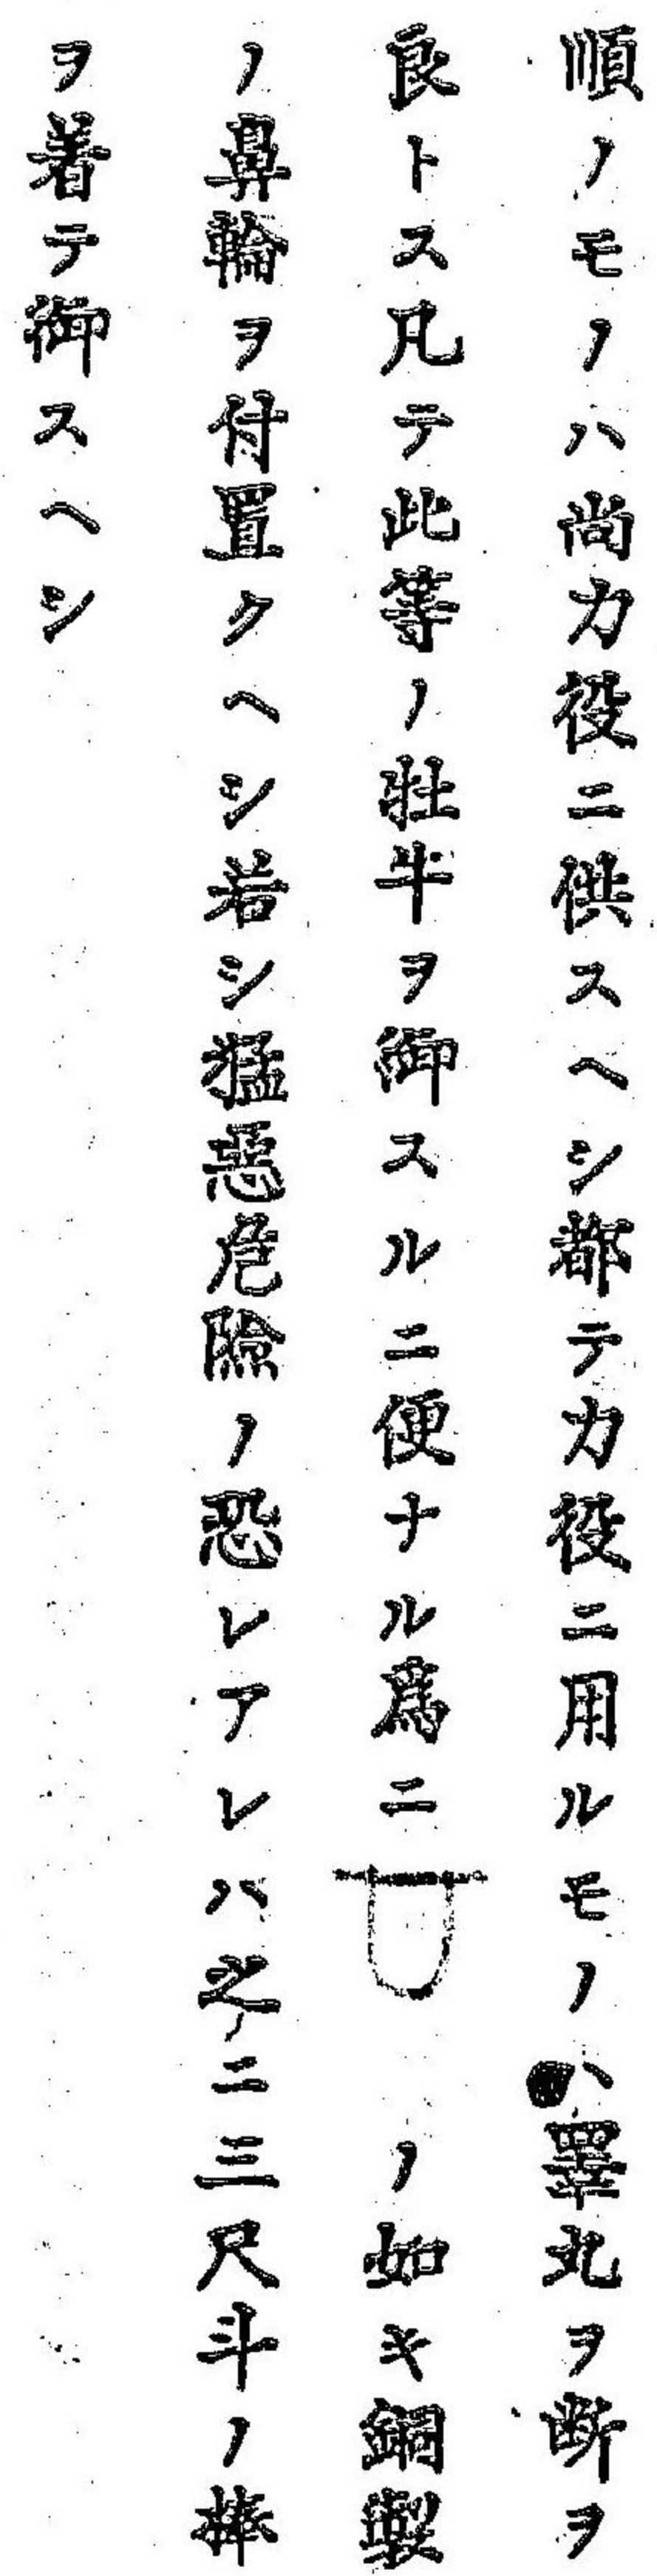 順ノモノハ尚力役ニ供スヘシ都テ力役ニ用ルモノハ睾丸ヲ断ヲ
良トス凡テ此等ノ牡牛ヲ御スルニ便ナル為ニ ノ如キ銅製
ノ鼻輪ヲ付置クヘシ若シ猛惡危險ノ恐レアレハ之ニ三尺斗ノ棒
ヲ着テ御スヘシ